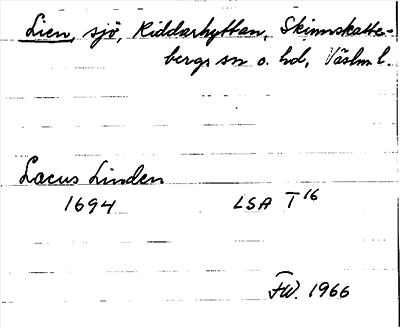 Lien, sjö, Riddarhyttan, Skinnskatte-
bergs sn o. hd, Västm l.
Lacus Linden
1694 LSA T16
FW. 1966